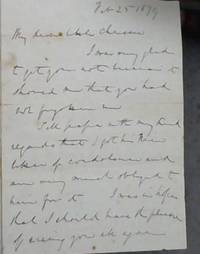 Feb 25 1879
My dear
I was very glad
to get your note because it
showed me that you had
not forgotten me
Tell papa with my kind
regards that I got his kind
letter of condolence and
am very much obliged to
him for it I was in hopes
that I should have the pleasure
of seeing you all again